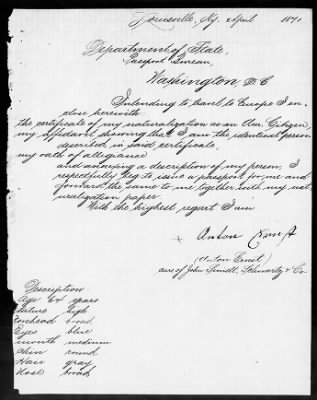 Louisville, Ky. April 1891
Department of State,
Passport Bureau,
Washington, D.C
Intending to travel to Europe I en-
close herewith
the certificate of my naturalization as an Am. Citizen,
my Affidavit showing that I am the identical person
described in said certificate,
my oath of allegiance
and annexing a description of my person, I
respectfully beg to issue a passport for me and
forward the same to me together with my nat-
uralization paper.
With the highest regart I am
Anton Ernst
(Anton Ernst)
care of John Schwartz & Co.
Description
Age 64 years
Stature high
Forehead broad
Eyes blue
mouth medium
chin round
Hair gray
Nose broad